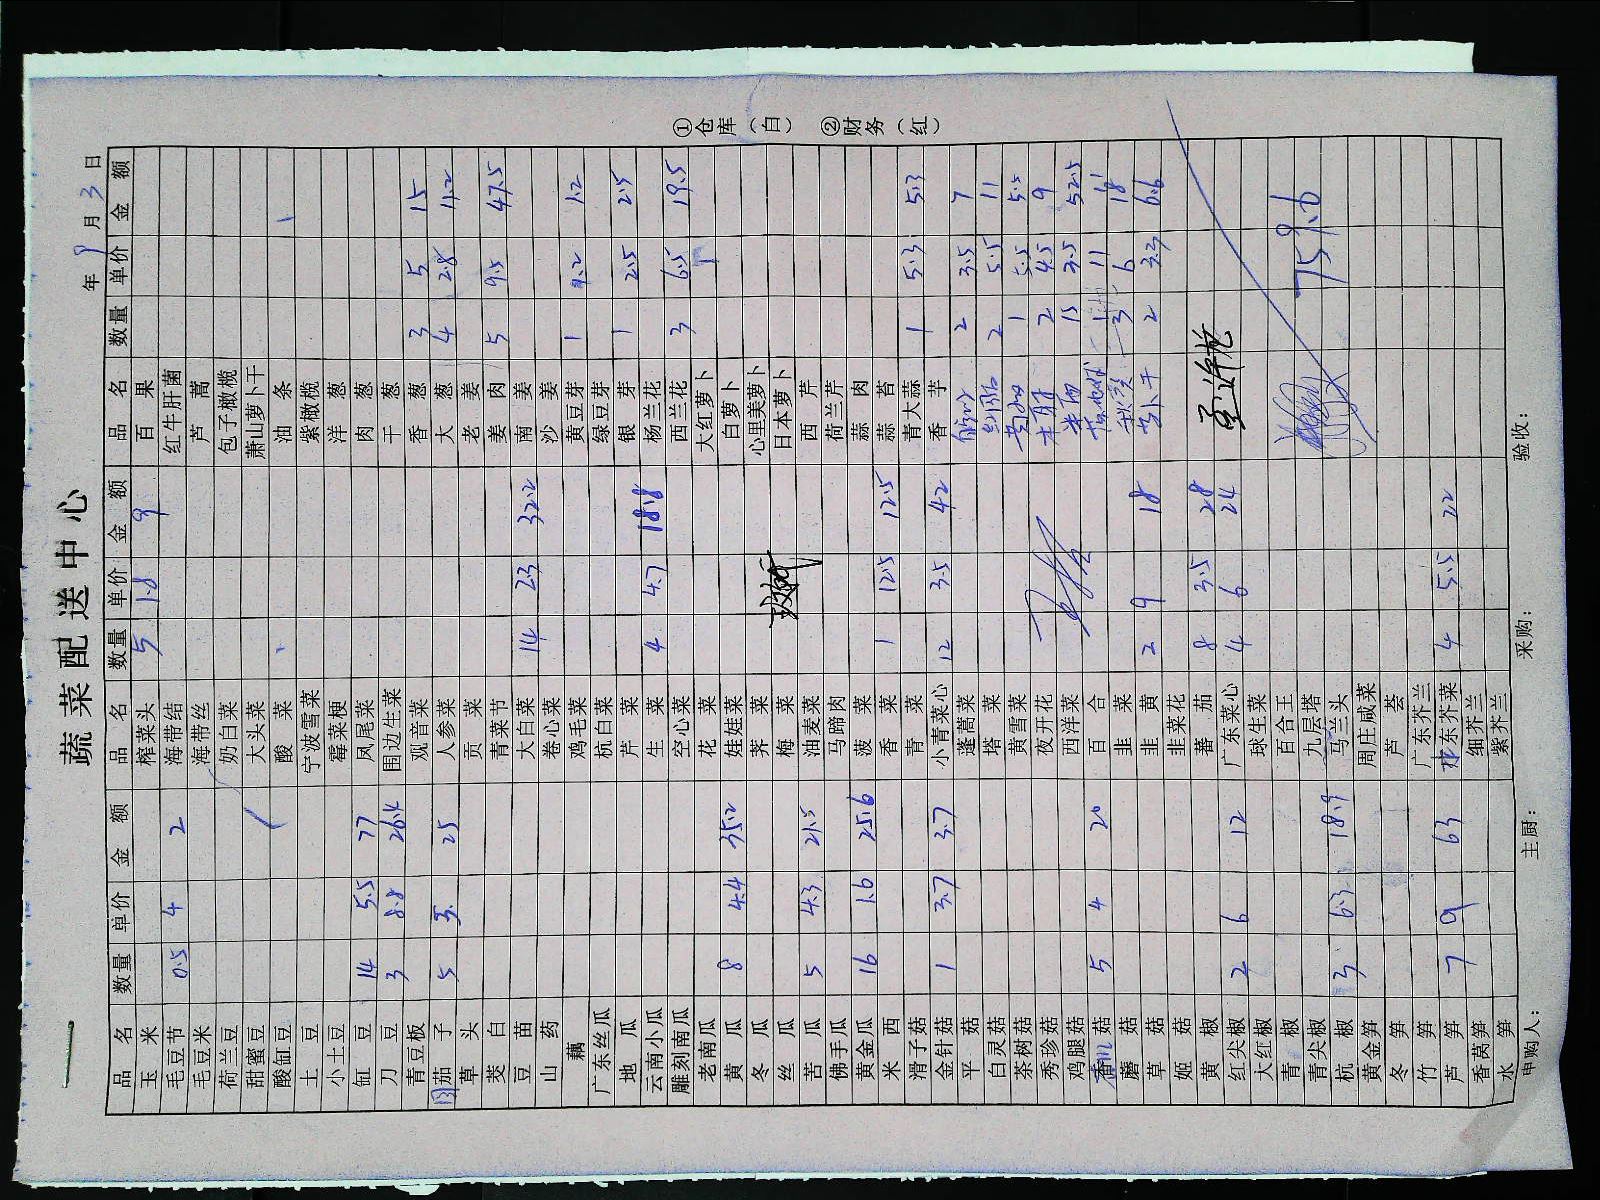 蔬菜配送中心
年 9 月 3 日
品名 数量 单价 金额 品名 数量 单价 金额 品名 数量 单价 金额
玉米 榨菜头 5 1.8 9 百果
毛豆节 0.5 4 2 海带结 红牛肝菌
毛豆米 海带丝 芦蒿
荷兰豆 奶白菜 包子橄榄
甜蜜豆 大头菜 萧山萝卜干
酸缸豆 酸菜 油条
土豆 宁波雪菜 紫橄榄
小土豆 霉菜梗 洋葱
缸豆 14 5.5 77 凤尾菜 肉葱
刀豆 3 8.8 26.4 围边生菜 干葱
青豆板 观音菜 香葱 3 5 15
茄子 5 5 25 人参菜 大葱 4 2.8 11.2
草头 贡菜 老姜
茭白 青菜节 姜肉 5 9.5 47.5
豆苗 大白菜 14 2.3 32.2 南姜
山药 卷心菜 沙姜
藕 鸡毛菜 黄豆芽 1 1.2 1.2
广东丝瓜 杭白菜 绿豆芽
地瓜 芹菜 银芽 1 2.5 2.5
云南小瓜 生菜 4 4.7 18.8 杨兰花
雕刻南瓜 空心菜 西兰花 3 6.5 19.5
老南瓜 花菜 大红萝卜
黄瓜 8 4.4 35.2 娃娃菜 白萝卜
冬瓜 荠菜 心里美萝卜
丝瓜 梅菜 日本萝卜
苦瓜 5 4.3 21.5 油麦菜 西芹
佛手瓜 马蹄肉 荷兰芹
黄金瓜 16 1.6 25.6 菠菜 蒜肉
米西 香菜 1 12.5 12.5 蒜苔
滑子菇 青菜 青大蒜 1 5.3 5.3
金针菇 1 3.7 3.7 小青菜心 12 3.5 42 香芋
平菇 蓬蒿菜 2 3.5 7
白灵菇 塔菜 2 5.5 11
茶树菇 黄雪菜 1 5.5 5.5
秀珍菇 夜开花 2 4.5 9
鸡腿菇 西洋菜 15 3.5 52.5
香菇 5 4 20 百合 1 11 11
蘑菇 韭菜 3 6 18
草菇 韭黄 2 9 18 萝卜干 2 3.3 6.6
姬菇 韭菜花
黄椒 蕃茄 8 3.5 28
红尖椒 2 6 12 广东菜心 4 6 24
大红椒 球生菜
青椒 百合王
青尖椒 九层塔
杭椒 3 6.3 18.9 马兰头 759.6
黄金笋 周庄咸菜
冬笋 芦荟
竹笋 广东芥兰
芦笋 7 9 63 东芥菜 4 5.5 22
香莴笋 细芥兰
水笋 紫芥兰
申购人: 主厨: 采购: 验收:
①仓库(白) ②财务(红)